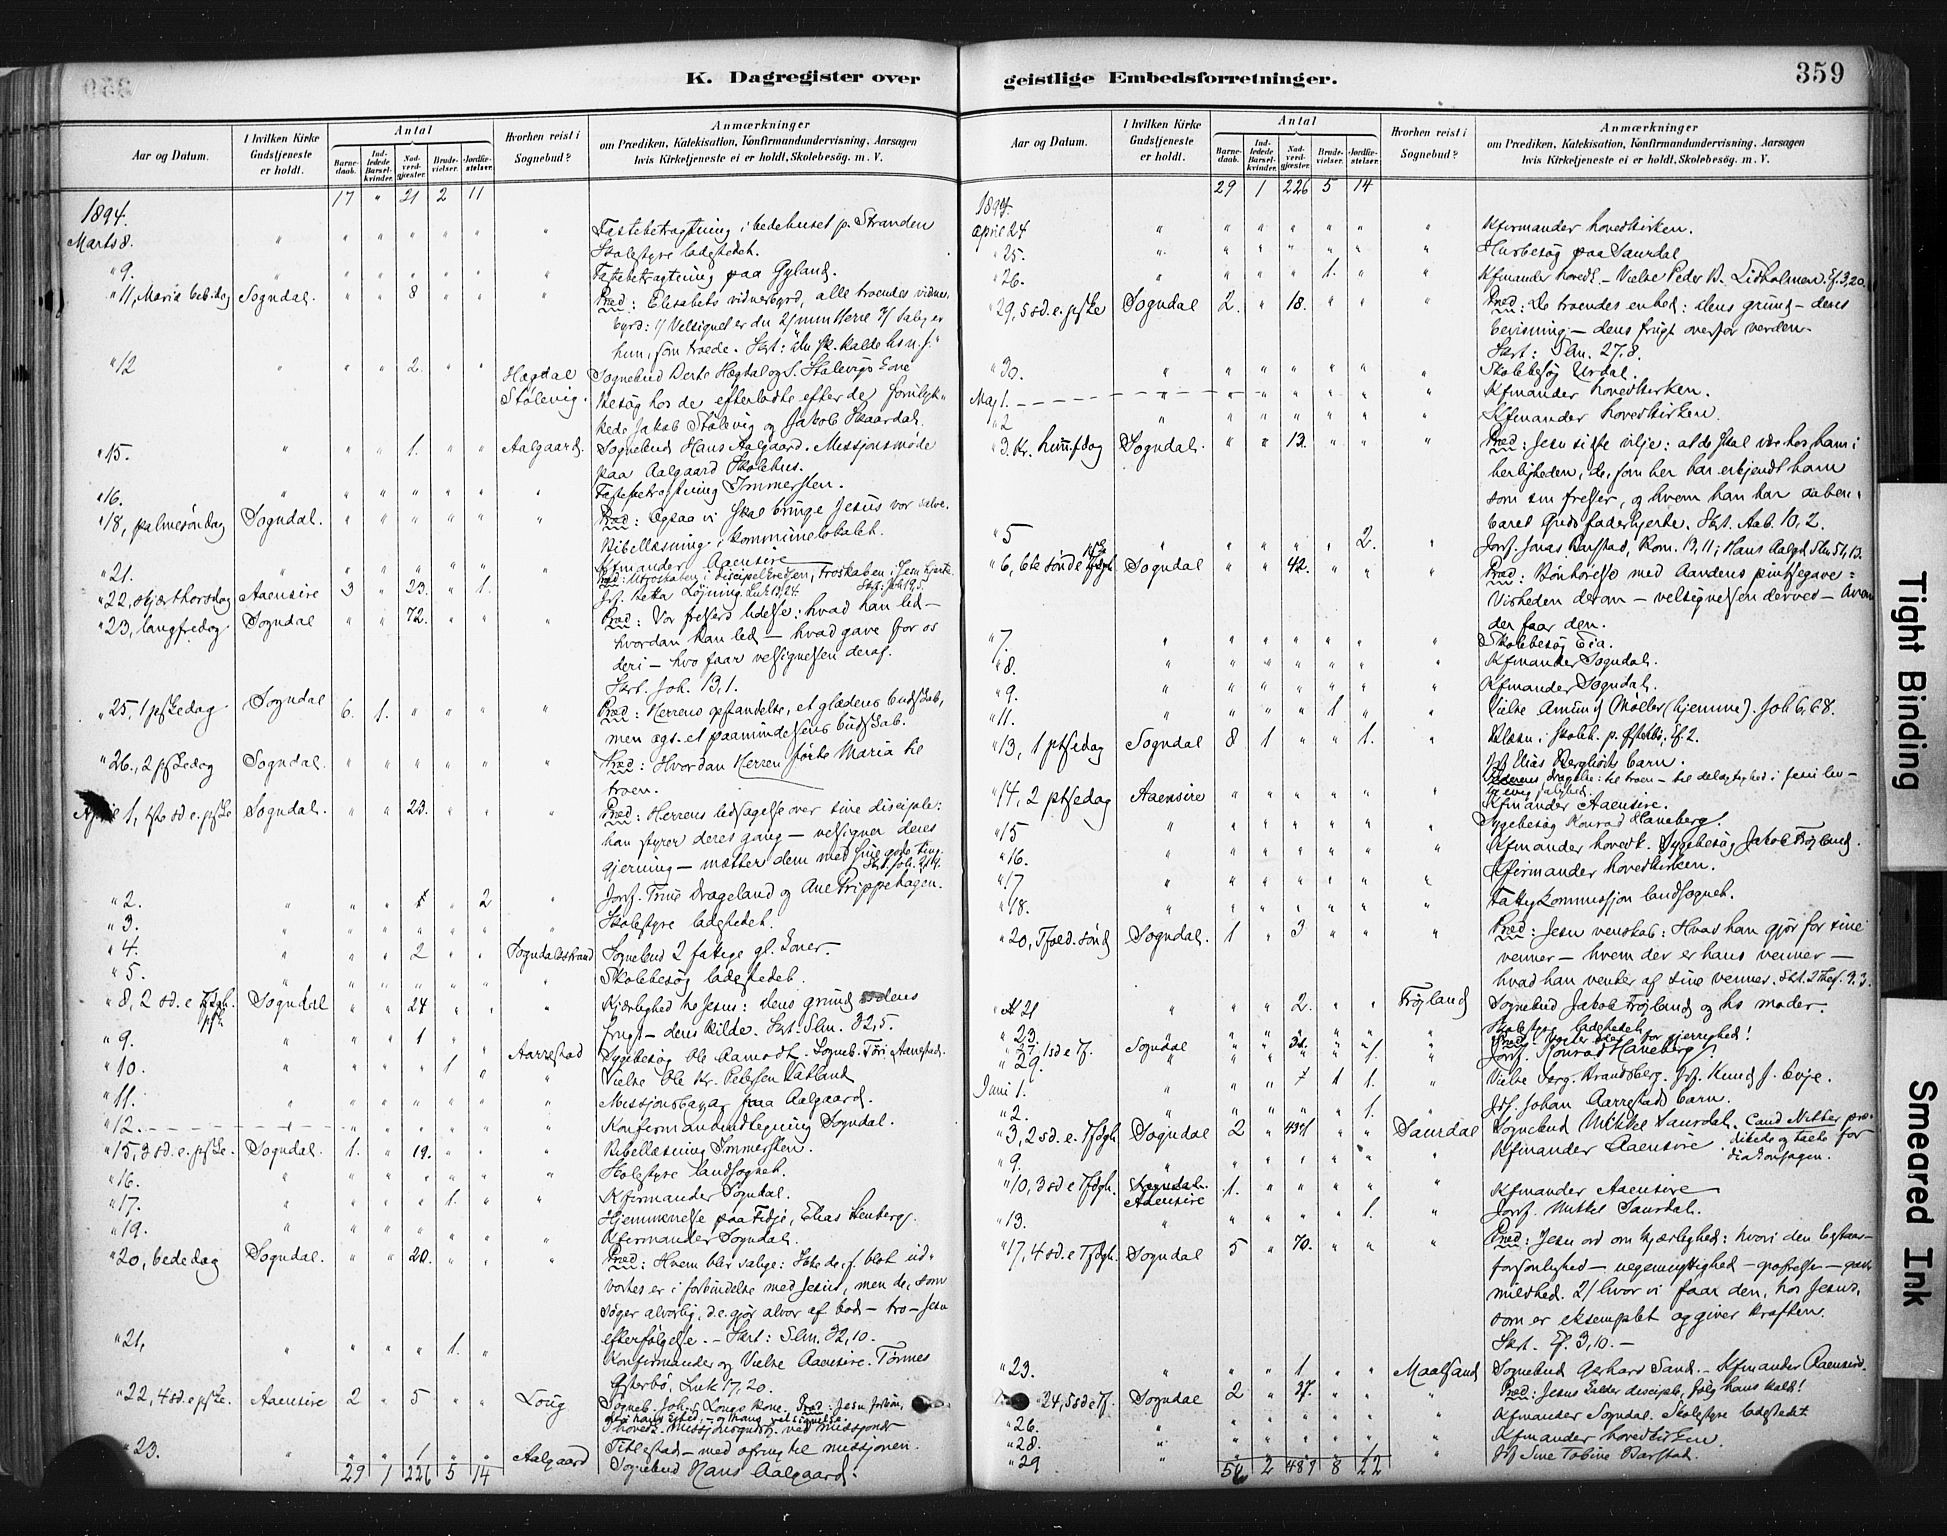 K. Dagregister over
Aar og Datum.
I hvilken Kirke Gudstjeneste er holdt.
Antal
Barnedaab.
Indledede Barselkvinder.
Nadverdgjæster.
Brudevielser.
Jordfæstelser.
Hvorhen reist i Sognebud?
Anmærkninger
om Prædiken, Katekisation, Konfirmandundervisning, Aarsagen
hvis Kirketjeneste ei er holdt, Skolebesög. m. V.
17 " 21 2 11
1894.
Marts 8. " " " " " " " Fastebetragtning i bedehuset p. Stranden
Skolestyre ladestedet.
" 9. " " " " " " Fastebetragtning paa Gyland.
" 11, Maria beb. dag Sogndal. " " 8 " " " Præd: Elisabets vidnesbyrd, alle troendes vidnes-
byrd: 1/ Velsignet er du 2/ min Herre 3/ salig er
hun, som troede.
" 12 " " " 2. " " Hægdal Sognebud Berte Hægdal og S. Stølevigs kone
Stølevig. Besøg hos de efterladte efter de forulyk-
kede Jakob Stølevig og Jakob Skaardal.
" 15. " " " 1. " " Aalgaard. Sognebud Hans Aalgaard. Missjonsmøde
paa Aalgaard Skolehus.
" 16. " " " " " " Fastebetragtning Immersten.
" 18, palmesøndag Sogndal. " " " " " " Præd: Ogsaa vi skal bringe Jesus vor salve.
Bibellæsning i kommunelokalet.
" 21. " " " " " " Kfmander Aaensire
" 22, skjærthorsdag Aaensire 3 " 23. " 1. Præd: Utroskaben i discipelkredsen, Troskaben i Jesu hjerte.
" 23, langfredag Sogndal " " 72. " " " Præd: Vor frelsers lidelse: hvad han led –
hvordan han led – hvad gave for os
deri – hvo faar velsignelsen deraf.
Skrt. Joh. 13,1.
" 25, 1 pskedag Sogndal 6. 1. " " " " Præd: Herrens opstandelse, et glædens budskab,
men ogs. et paamindelsens budskab.
" 26., 2 pskedag Sogndal. " " " " " " Præd: Hvordan Herren førte Maria til
troen.
April 1, 1ste sd e. pske Sogndal. " " 23. " " " Præd: Herrens ledsagelse over sine disciple:
han styrer deres gang – velsigner deres
gjerning – mætter dem med sine gode ting.
" 2. " " " " 2 " Jordf. Trine Drageland og Ane Prippehagen.
" 3. " " " " " " Skolestyre ladestedet.
" 4. " " " 2 " " Sogndalsstrand Sognebud 2 fattige gl. koner.
" 5. " " " " " " Skolebesøg ladestedet.
" 8, 2 sd. e. pske Sogndal " " 24 " " " Kjærlighed til Jesus: dens grund – dens
frugt – dens kilde. Skrt: Slm. 32,5.
" 9. " " " 1 " " Aarrestad Sygebesøg Ole Aamodt. Sogneb. Tøri Aarrestad.
" 10. " " " " 1 " " Vielse Ole Kr. Petersen Vatland
" 11. " " " " " " Missjonsbazar paa Aalgaard.
" 12. " " " " " " Konfirmandindtegning Sogndal.
" 15, 3 sd. e. pske. Sogndal. 1. " 19. " " " Bibellæsning Immersten.
" 16. " " " " " " Skolestyre landsognet.
" 17. " " " " 1. " " Kfirmander Sogndal.
" 19. " " " " " " Hjemmevielse paa Fidje, Elias Stenberg.
Kfirmander Sogndal.
" 20, bededag Sogndal. " " 20. " " " Præd: Hvem blir salige: Ikke de, s. blot ud-
vortes er i forbindelse med Jesus, men de, som
søger alvorlig, d.e. gjør alvor af bod – tro – Jesu
efterfølgelse. – Skrt: Slm. 32,10.
" 21, " " " " 1. " Konfirmander og Vielse Aaensire. Tønnes
Østerbø, Luk 17,20.
" 22, 4 sd. e. pske. Aaensire 2 " 5 " " Loug Sogneb. Joh. s Lougs kone.
" 23. " " " 1 " " Aalgaard Titlestad – med ofring til missjonen.
Sognebud Hans Aalgaard.
29 1 226 5 14
geistlige Embedsforretninger.
359
Aar og Datum.
I hvilken Kirke Gudstjeneste er holdt.
Antal
Barnedaab.
Indledede Barselkvinder.
Nadverdgjæster.
Brudevielser.
Jordfæstelser.
Hvorhen reist i Sognebud?
Anmærkninger
om Prædiken, Katekisation, Konfirmandundervisning, Aarsagen
hvis Kirketjeneste ei er holdt, Skolebesög. m. V.
29 1 226 5 14
1894.
April 24 " " " " " " " Kfirmander hovedkirken.
" 25. " " " " " " Husbesøg paa Saurdal
" 26. " " " " 1. " " Kfmander hovedk. – Vielse Peder B. Lidholmen. Ef. 3,20.
" 29, 5 sd. e. pske Sogndal 2. " 18. " " " Præd: De troendes enhed: dens grund – dens
bevisning – dens frugt overfor verden.
Skrt: Slm. 27,8.
" 30. " " " " " " Skolebesøg Urdal.
Maj 1. " " " " " " Kfmander hovedkirken.
" 2 " " " " " " Kfmander hovedkirken.
" 3. Kr. himfdag Sogndal. " " 13. " " " Præd: Jesu sidste vilje: at de skal være hos ham i
herligheden, de, som her har erkjendt ham
som sin frelser, og hvem han har aaben-
baret Guds faderhjerte. Skrt. Aab. 10,2.
" 5 " " " " 2. " Jordf. Jonas Barstad, Rom. 13,11; Hans Aalgd. Slm 51,13.
" 6, 6te sønd e pske Sogndal " " 42. " " " Præd: Bønhørelse med Aandens pintsegave:
Visheden derom – velsignelsen derved – hvem
der faar den.
" 7. " " " " " " Skolebesøg Eia.
" 8. " " " " " " Kfmander Sogndal.
" 9. " " " " " " Kfmander Sogndal.
" 11. " " " " 1 " " Vielse Amund Møller (hjemme). Joh 6,68.
" 13, 1 ptsedag Sogndal 8 1 " " 1. " Bblæsn. i skoleh. p. Østerbø, Ef. 2.
Jdf. Elias Berglyds barn.
" 14, 2 ptsedag Aaensire " " " " " "
Kfmander Aaensire.
" 15 " " " " " " Sygebesøg Konrad Haneberg.
" 16. " " " " " " Kfmander hovedk. Sygebesøg Jakob Frøyland.
" 17 " " " " " " Kfirmander hovedkirken.
" 18. " " " " " " Fattigkommissjon landsognet.
" 20, Tfold. sønd Sogndal. 1 " 3 " " " Præd: Jesu venskab: Hvad han gjør for sine
venner – hvem der er hans venner –
hvad han venter af sine venner. Skt. 2 Thes. 3,3.
" 21 " " " 2. " " Frøyland Sognebud Jakob Frøyland og hs moder.
" 23. " " " " " " Skolestyre ladestedet.
" 27. 1 sd e Tf. Sogndal for gjerrighed!
" 29. " " " " 1. " Jordf. Konrad Haneberg.
Juni 1. " " " " 1 1. " Vielse Serg. Strandsberg. Jdf. Knud J. Evje.
" 2. " " " " 1. " Jdf. Johan Aarrestads barn.
" 3, 2 sd. e. Tfdgh. Sogndal 2 " " " Saurdal Sognebud Mikkel Saurdal. Cand Nitter præ-
dikede og talte for
diakonsagen.
" 9. " " " " " " Kfmander Aaensire
" 10, 3 sd e Tfdgh. Aaensire 1. " " " " " Kfmander Aaensire
" 13. " " " " 1. " Jordf. Mikkel Saurdal.
" 17, 4 sd. e Tfdgh. Sogndal 5 " 70. " " " Præd: Jesu ord om kjærlighed: hvori den bestaar –
forsonlighed – uegennyttighed – opofrelse – gav-
mildhed. 2/ hvor vi faar den, hos Jesus,
som er eksemplet og giver kraften.
Skt. Ef. 3,10. –
" 23. " " " 1 " " Maalsand Sognebud Gerhard Sand. – Kfmander Aaensire.
" 24, 5 sd e Tf. Sogndal 2 " 27. " " " Præd: Jesus kalder disciple, følg hans kald!
" 26. " " " " " " Kfmander Sogndal. Skolestyre ladestedet
" 28. " " " " " " Kfmander hovedkirken.
" 29 " " " " 1 " Jdf Sine Tobine Barstad.
2 489 8 22
Tight Binding
Smeared Ink